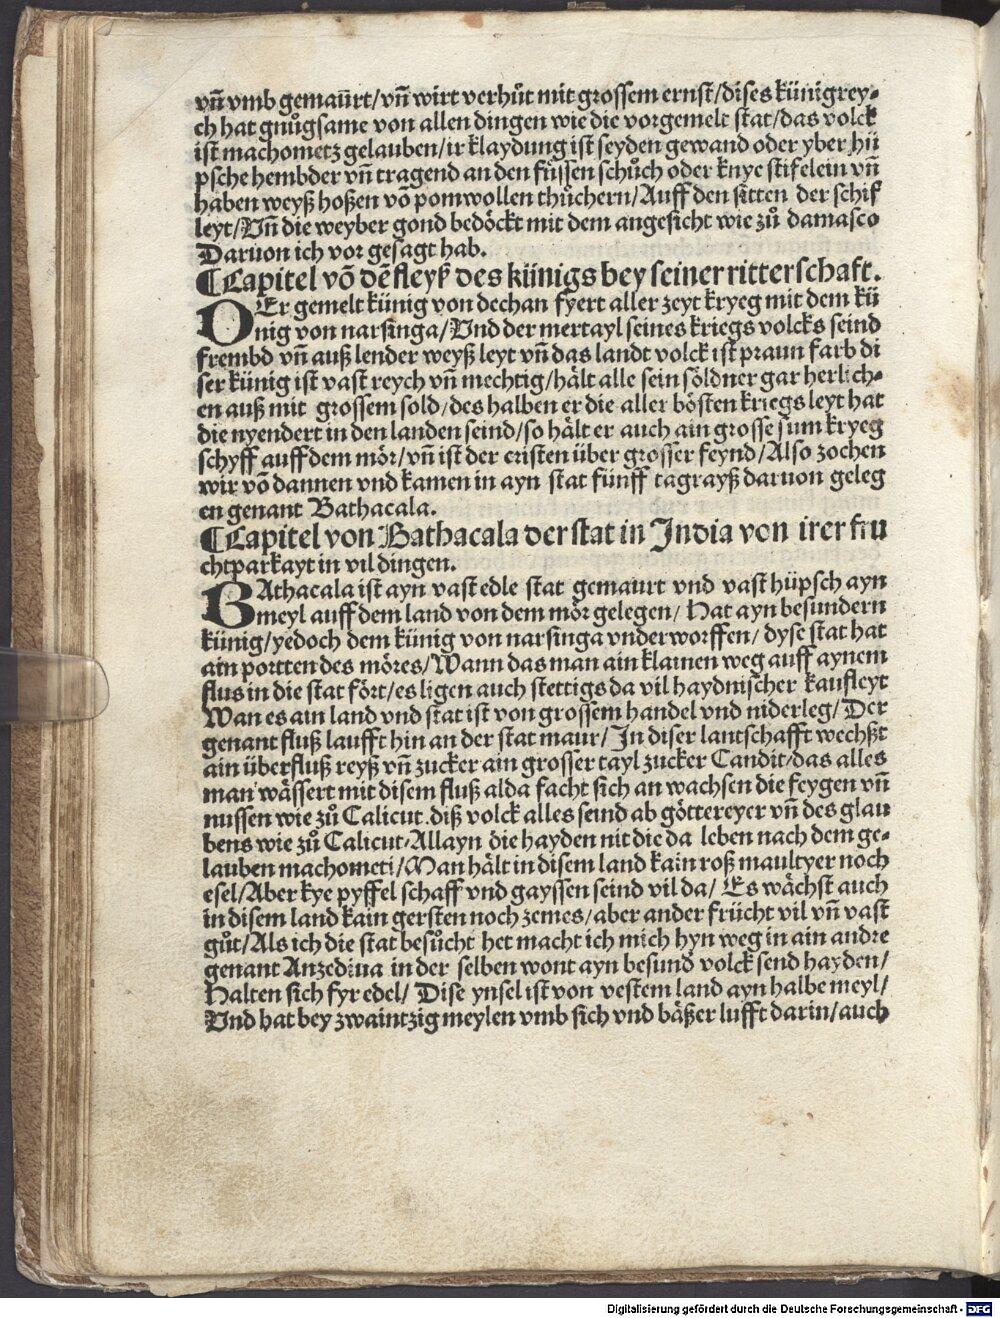 vñ vmb gemaürt/vñ wirt verhůt mit grossem ernst/dises künigrey-
ch hat gnůgsame von allen dingen wie die vorgemelt stat/das volck
ist machometz gelauben/ir klaydung ist seyden gewand oder yber hü
psche hembder vñ tragend an den füssen schůch oder knye stifelein vñ
haben weyß hoßen võ pomwollen thůchern/Auff den sitten der schif
leyt/Vñ die weyber gond bedöckt mit dem angesicht wie zů damasco
Daruon ich vor gesagt hab.
¶Capitel võ dẽ fleyß des künigs bey seiner ritterschaft.
DEr gemelt künig von dechan fyert aller zeyt kryeg mit dem kü
nig von narsinga/Vnd der mertayl seines kriegs volcks seind
frembd vñ auß lender weyß leyt vñ das landt volck ist praun farb di
ser künig ist vast reych vñ mechtig/hält alle sein söldner gar herlich-
en auß mit grossem sold/des halben er die aller bösten kriegs leyt hat
die nyendert in den landen seind/so hält er auch ain grosse sum kryeg
schyff auff dem mör/vñ ist der cristen über grosser feynd/Also zochen
wir võ dannen vnd kamen in ayn stat fünff tagrayß daruon geleg
en genant Bathacala.
¶Capitel von Bathacala der stat in India von irer fru
chtparkayt in vil dingen.
BAthacala ist ayn vast edle stat gemaurt vnd vast hüpsch ayn
meyl auff dem land von dem mör gelegen/ Hat ayn besundern
künig/yedoch dem künig von narsinga vnderworffen/ dyse stat hat
ain portten des möres/Wann das man ain klainen weg auff aynem
flus in die stat fört/es ligen auch stettigs da vil haydnischer kaufleyt
Wan es ain land vnd stat ist von grossem handel vnd niderleg/ Der
genant fluß laufft hin an der stat maur/ In diser lantschafft wechßt
ain überfluß reyß vñ zucker ain grosser tayl zucker Candit/das alles
man wässert mit disem fluß alda facht sich an wachsen die feygen vñ
nussen wie zů Calicut.diß volck alles seind ab göttereyer vñ des glau
bens wie zů Calicut/Allayn die hayden nit die da leben nach dem ge-
lauben machometi/Man hält in disem land kain roß maultyer noch
esel/Aber kye pyffel schaff vnd gayssen seind vil da/ Es wächst auch
in disem land kain gersten noch zemes/aber ander frücht vil vñ vast
gůt/Als ich die stat besůcht het macht ich mich hyn weg in ain andre
genant Anzediua in der selben wont ayn besund volck send hayden/
Halten sich fyr edel/ Dise ynsel ist von vestem land ayn halbe meyl/
Vnd hat bey zwaintzig meylen vmb sich vnd bäßer lufft darin/auch
Digitalisierung gefördert durch die Deutsche Forschungsgemeinschaft - DFG